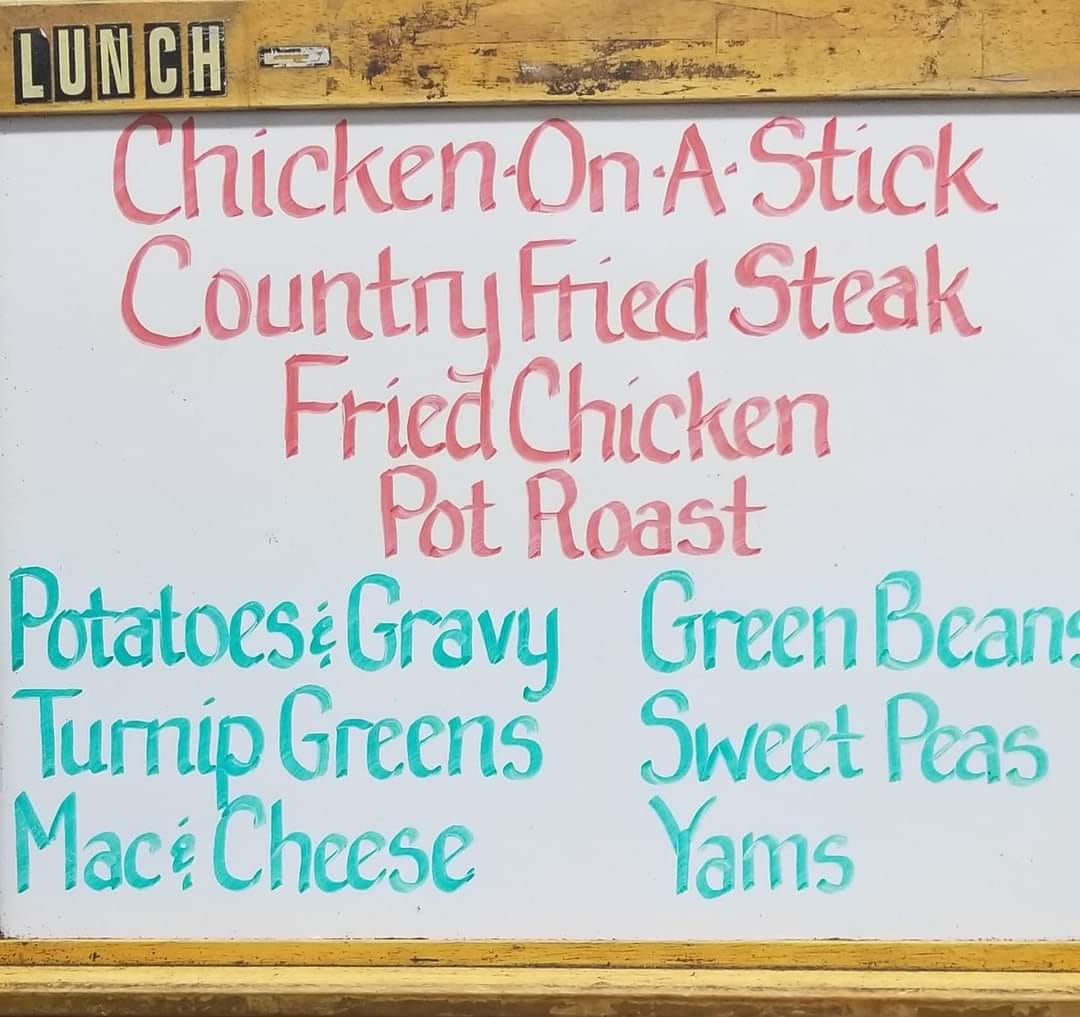 LUNCH
Chicken·On·A·Stick
Country Fried Steak
Fried Chicken
Pot Roast
Potatoes & Gravy
Green Beans
Turnip Greens
Sweet Peas
Mac & Cheese
Yams